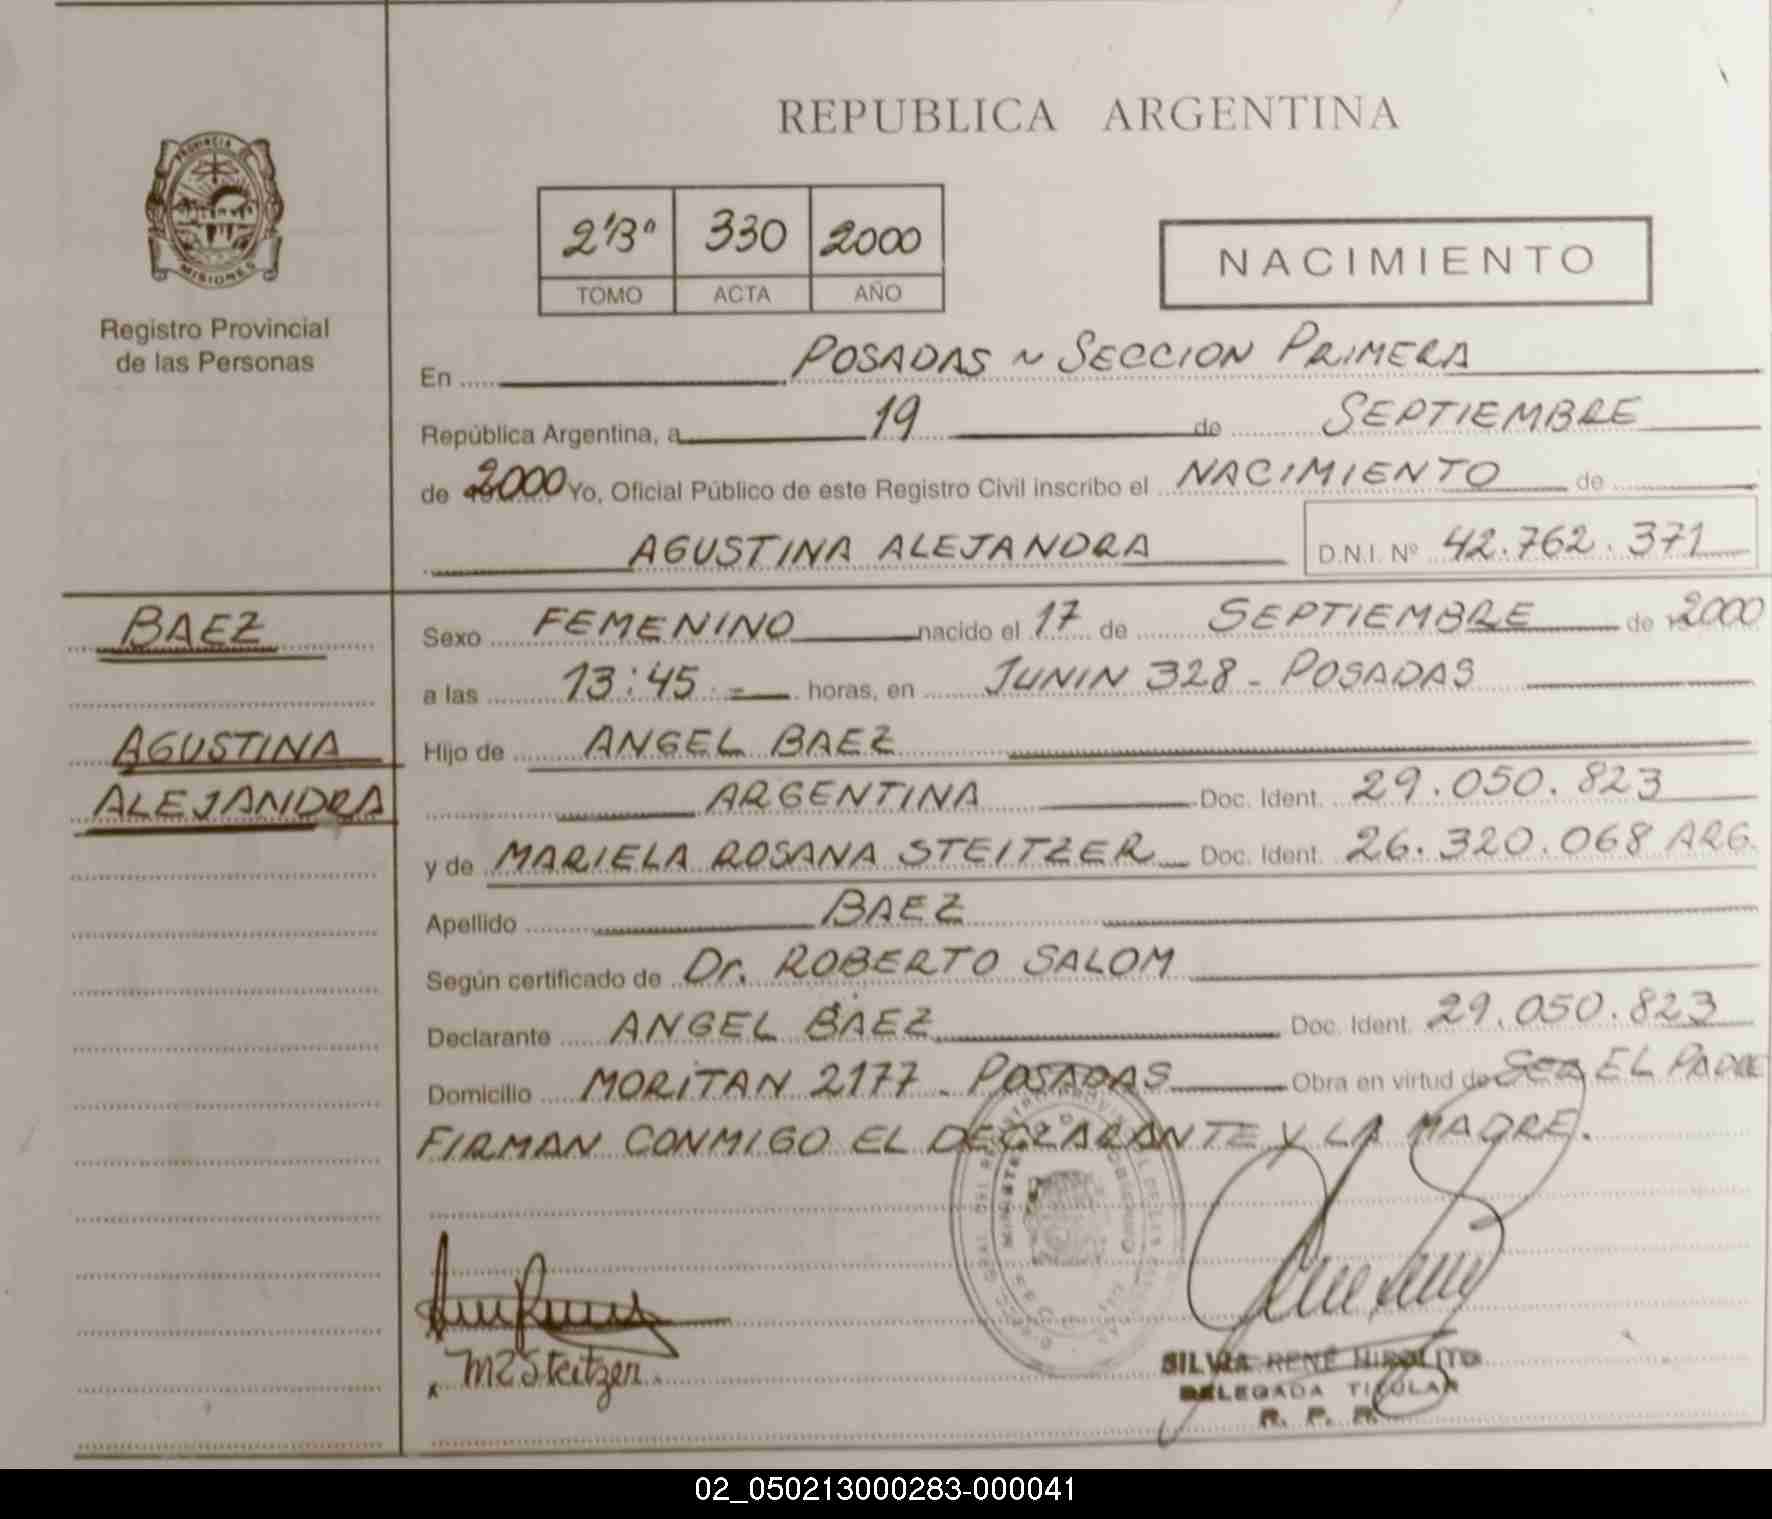 REPUBLICA ARGENTINA
PROVINCIA DE
MISIONES
Registro Provincial
de las Personas
2'B" 330 2000
TOMO ACTA AÑO
NACIMIENTO
En POSADAS ~ SECCION PRIMERA
República Argentina, a 19 de SEPTIEMBRE
de 2000 Yo, Oficial Público de este Registro Civil inscribo el NACIMIENTO de
AGUSTINA ALEJANDRA D.N.I. Nº 42.762.371
BAEZ
AGUSTINA
ALEJANDRA
Sexo FEMENINO nacido el 17 de SEPTIEMBRE de 2000
a las 13:45 horas, en JUNIN 328 - POSADAS
Hijo de ANGEL BAEZ
ARGENTINA Doc. Ident. 29.050.823
y de MARIELA ROSANA STEITZER Doc. Ident. 26.320.068 ARG.
Apellido BAEZ
Según certificado de Dr. ROBERTO SALOM
Declarante ANGEL BAEZ Doc. Ident. 29.050.823
Domicilio MORITAN 2177 - POSADAS Obra en virtud de SER EL PADRE
FIRMAN CONMIGO EL DECLARANTE Y LA MADRE.
MRSteitzer.
SILVIA RENÉ HIPOLITO
DELEGADA TITULAR
R. P. P.
02_050213000283-000041